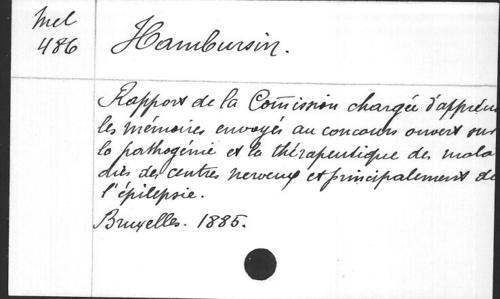 Mel
486
Hambursin.
Rapport de la Com̃ission chargée d'appréc
les mémoires envoyés au concours ouvert sur
la pathogénie et la thérapeutique des mala
dies des centres nerveux et principalement de
l'épilepsie.
Bruxelles. 1885.